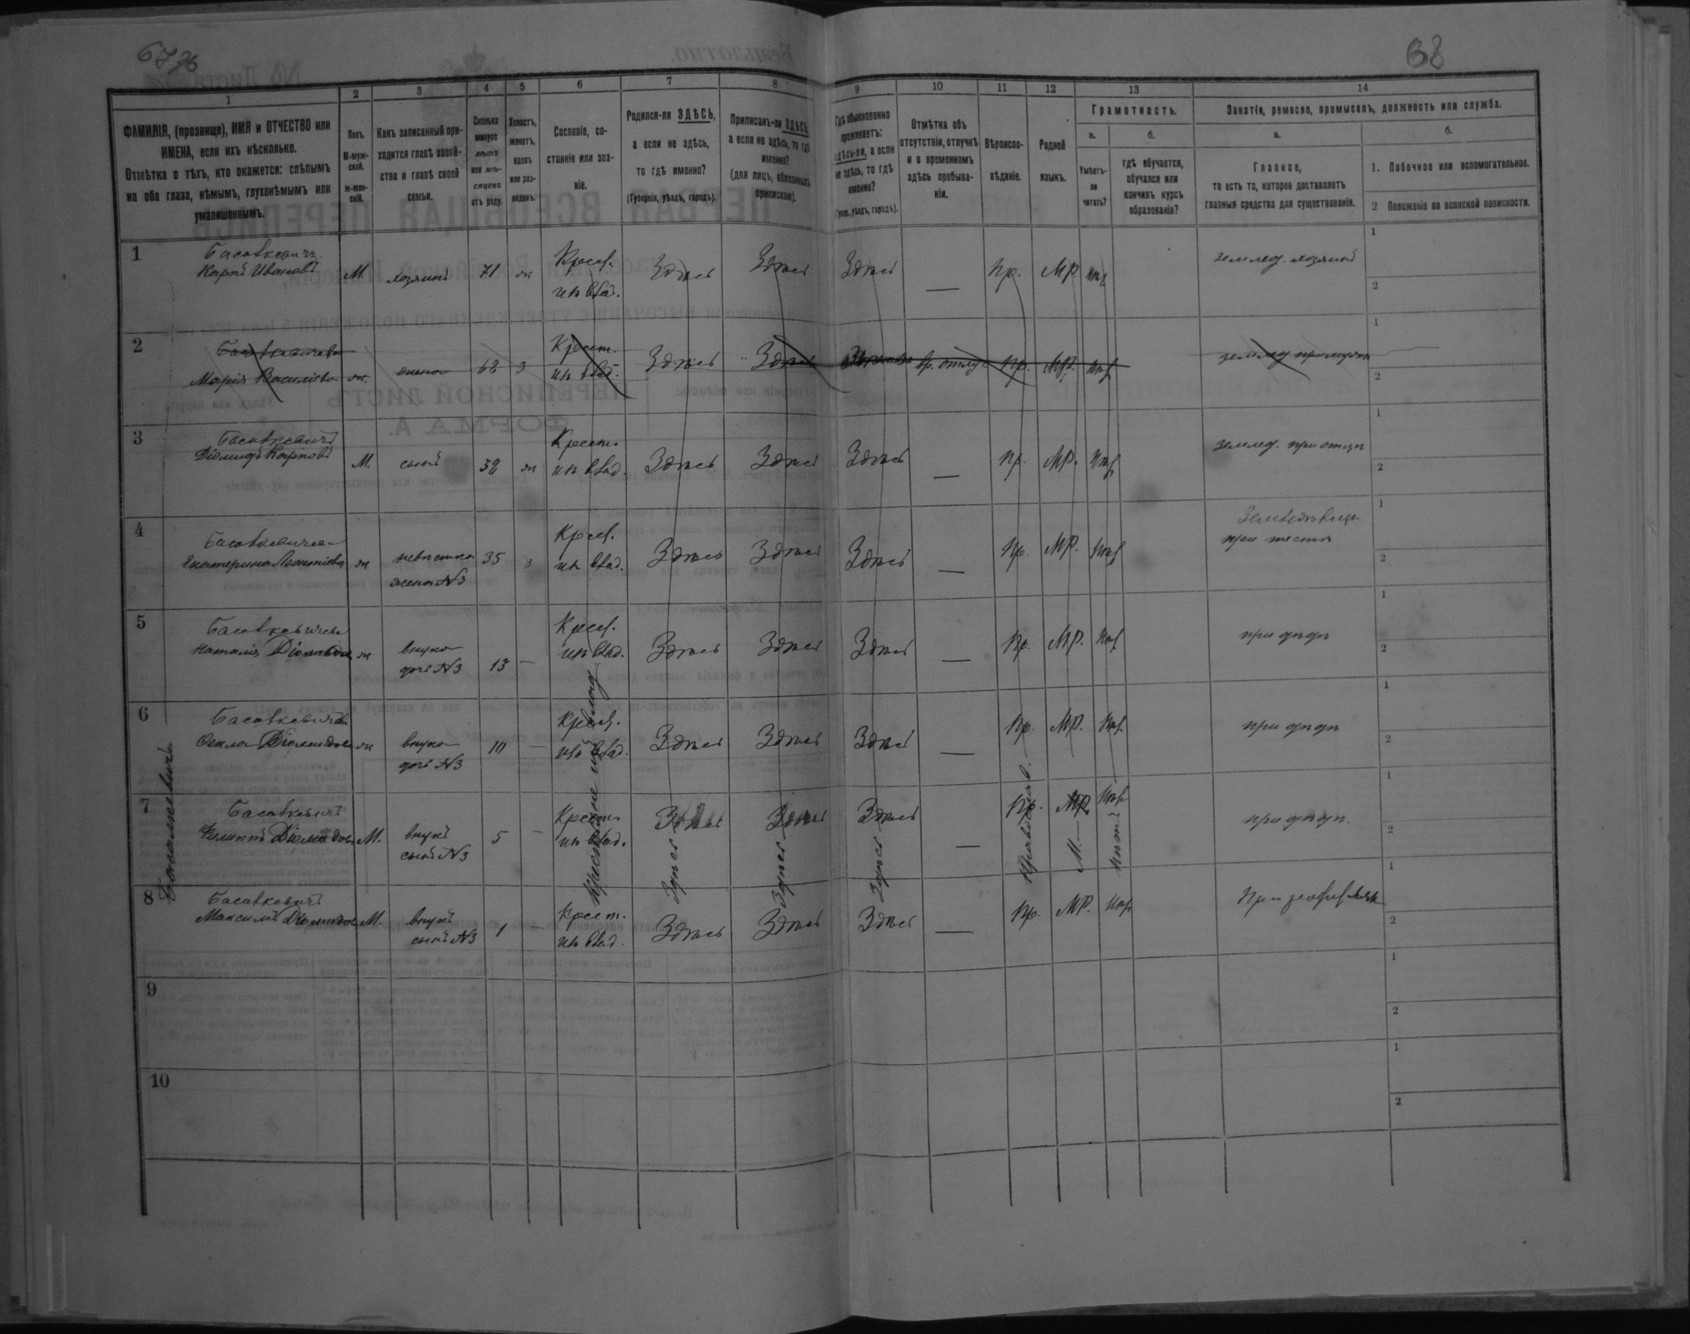 68
1 2 3 4 5 6 7 8 9 10 11 12 13 14
ФАМИЛІЯ, (прозвище), ИМЯ и ОТЧЕСТВО или
ИМЕНА, если ихъ нѣсколько.
Отмѣтка о тѣхъ, кто окажется: слѣпымъ
на оба глаза, нѣмымъ, глухонѣмымъ или
умалишеннымъ.
Полъ.
М-муж-
ской.
ж-жен-
скій.
Какъ записанный при-
ходится главѣ хозяй-
ства и главѣ своей
семьи.
Сколько
минуло
лѣтъ
или мѣ-
сяцевъ
отъ роду.
Холостъ,
женатъ,
вдовъ
или раз-
веденъ.
Сословіе, со-
стояніе или зва-
ніе.
Родился-ли ЗДѢСЬ,
а если не здѣсь,
то гдѣ именно?
(Губернія, уѣздъ, городъ).
Приписанъ-ли ЗДѢСЬ,
а если не здѣсь, то гдѣ
именно?
(для лицъ, обязанныхъ
припискою).
Гдѣ обыкновенно
проживаетъ:
здѣсь-ли, а если
не здѣсь, то гдѣ
именно?
(Губ., уѣздъ, городъ).
Отмѣтка объ
отсутствіи, отлучкѣ
и о временномъ
здѣсь пребыва-
ніи.
Вѣроиспо-
вѣданіе.
Родной
языкъ.
Грамотность.
а.
Умѣетъ-
ли
читать?
б.
гдѣ обучается,
обучался или
кончилъ курсъ
образованія?
Занятіе, ремесло, промыселъ, должность или служба.
а.
Главное,
то есть то, которое доставляетъ
главныя средства для существованія.
б.
1. Побочное или вспомогательное.
2 Положеніе по воинской повинности.
1
Басавкевичъ
Карпъ Ивановъ М хозяинъ 71 ж Крест. изъ влад. Здѣсь Здѣсь Здѣсь — Пр. МР. нѣт землед. хозяинъ
1
2
2
Марія Василіева ж. жена 62 з Крест. изъ влад. Здѣсь Здѣсь Пр. МР. нѣт
1
2
3
Басавкевичъ
Діомидъ Карповъ М. сынъ 38 ж Крест. изъ влад. Здѣсь Здѣсь Здѣсь — Пр. МР. нѣт землед. при отцѣ
1
2
4
Басавкевичева
Екатерина Леонтіева ж невѣстка жена №3 35 з Крест. изъ влад. Здѣсь Здѣсь Здѣсь — Пр. МР. нѣт
при тестѣ
1
2
5
Басавкевичева
Наталія Діомидова ж внука дочь №3 13 — Крест. изъ влад. Здѣсь Здѣсь Здѣсь — Пр. МР. нѣт при отцѣ
1
2
6
Басавкевичева
Фекла Діомидова ж внука дочь №3 10 — Крест. изъ влад. Здѣсь Здѣсь Здѣсь — Пр. МР. нѣт при отцѣ
1
2
7
Басавкевичъ
Филипъ Діомидовъ М. внукъ сынъ №3 5 — Крест. изъ влад. Здѣсь Здѣсь Здѣсь — Пр. МР. нѣт при отцѣ
1
2
8
Басавкевичъ
Максимъ Діомидовъ М. внукъ сынъ №3 1 — Крест. изъ влад. Здѣсь Здѣсь Здѣсь — Пр. МР. нѣт
1
2
9
1
2
10
1
2